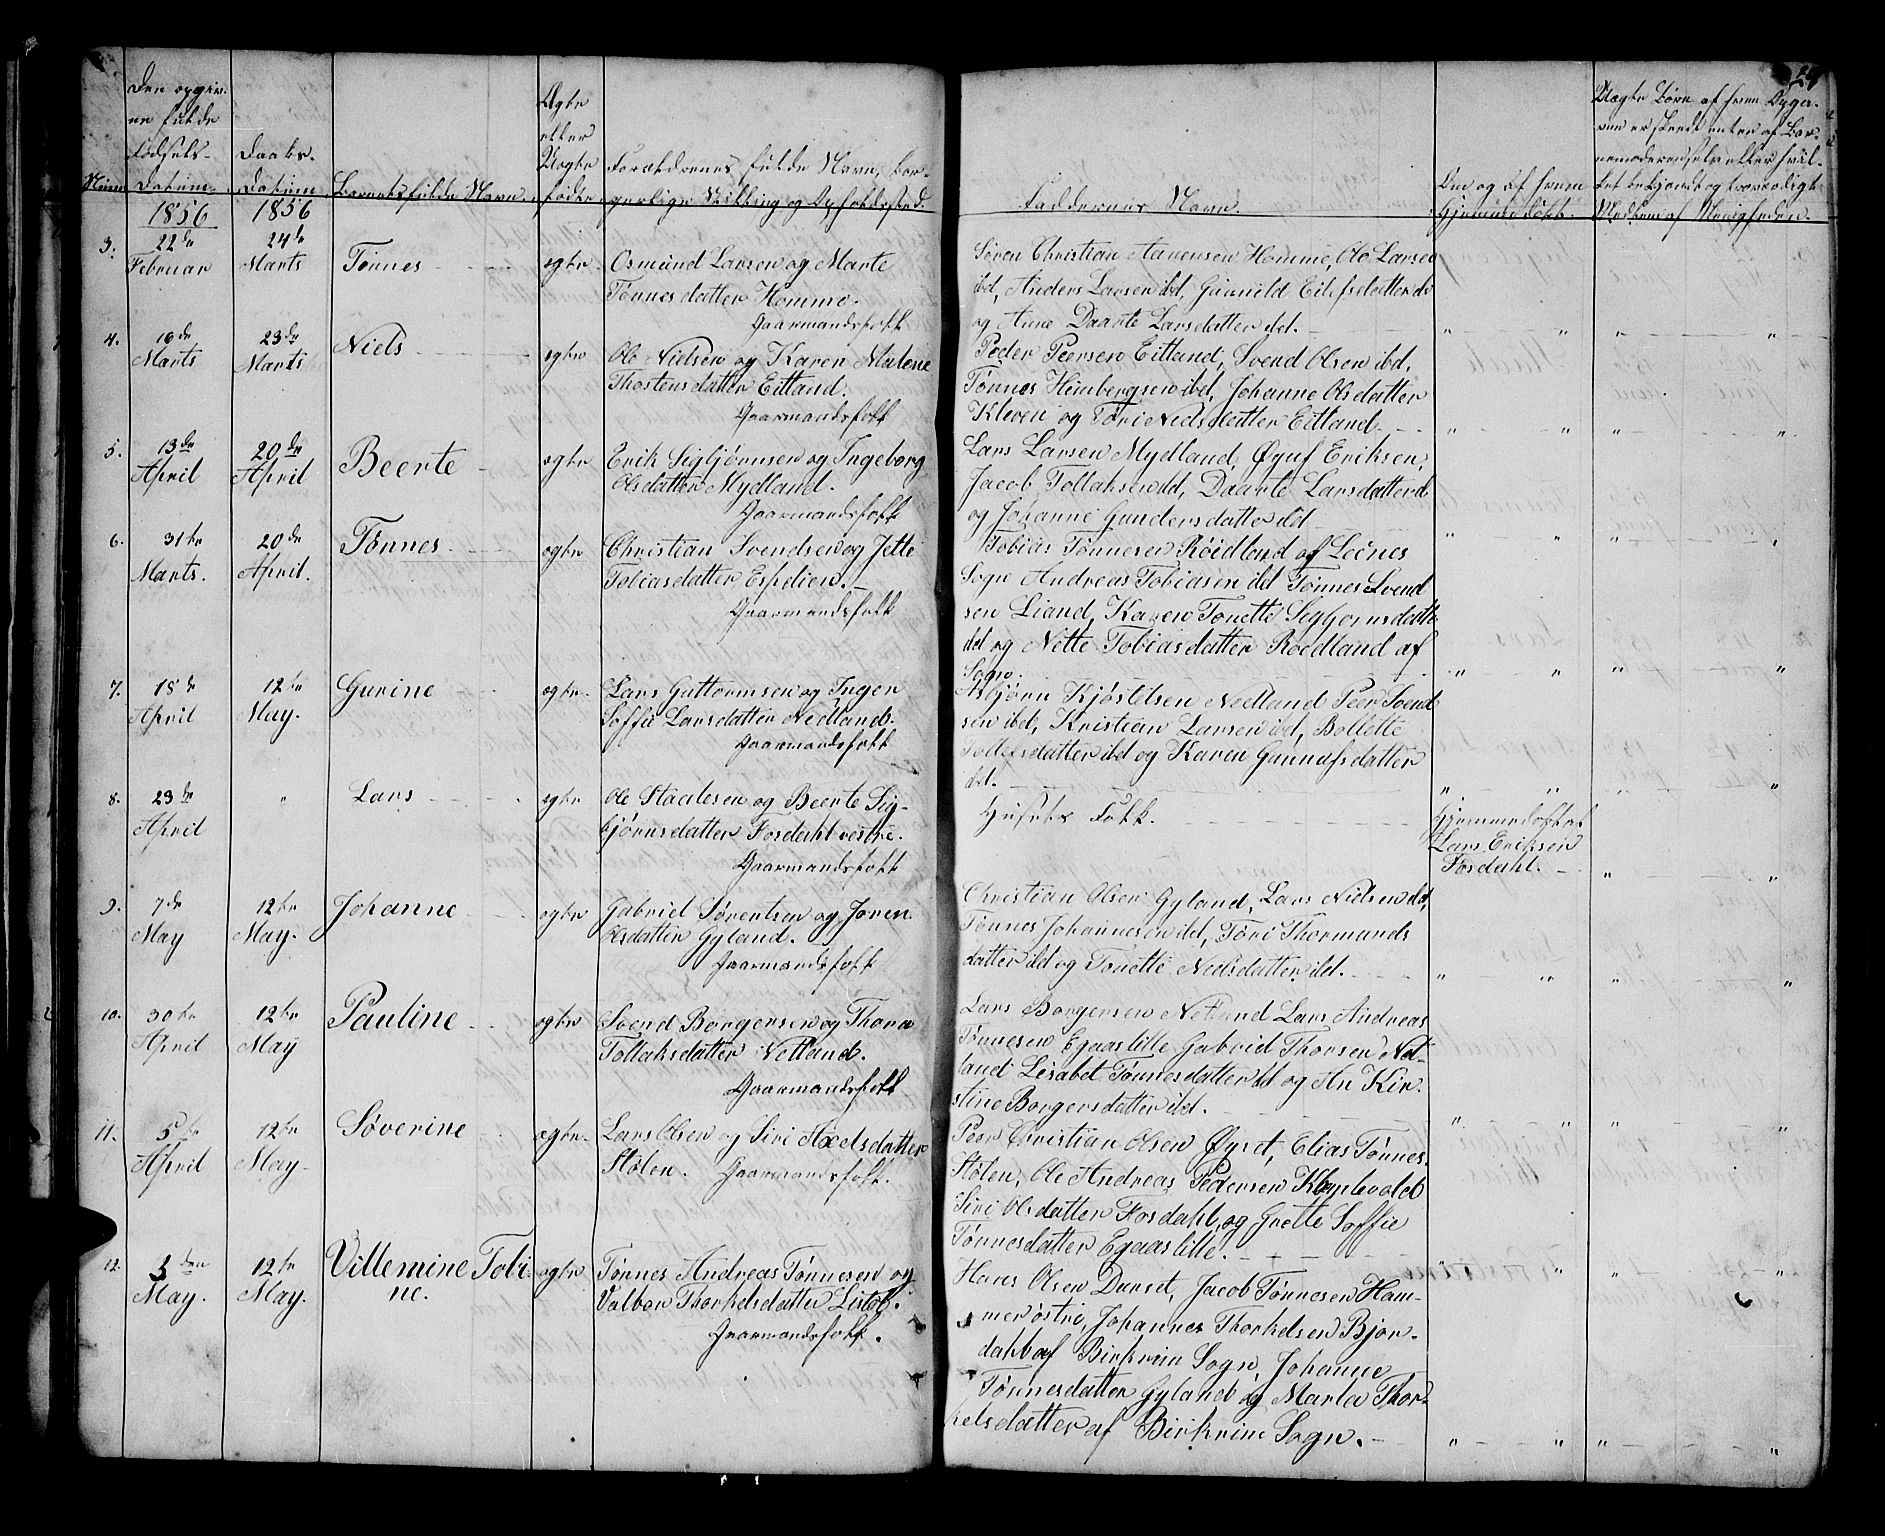 24
Den opgiv-
ne fulde
Fødsels-
Datum.
Daabs-
Datum
Num
Barnets fulde Navn.
Ægte
eller
Uægte
fødte
Forældrenes fulde Navn, bor-
gerlige Stilling og Opholdssted.
Faddernes Navn.
Om og af hvem
hjemmedøbt.
Uægte Børn af hvem Opgi-
1856
1856
3.
22de
Februar
24de
Marts
Tønnes
ægte
Osmund Larsen og Marte
Tønnesdatter Homme.
Gaarmandsfolk
Søren Christian Aanensen Homme, Ole Larsen
ibd, Anders Larsen ibd, Gunild Eilefsdatter
og Anne Daarte Larsdatter ibd.
4.
Marts
23de
Marts
Niels
ægte
Ole Nielsen og Karen Malene
Thostensdatter Eitland.
Gaarmandsfolk
Peder Peersen Eitland, Svend Olsen ibd,
Tønnes Heimbergsen ibd, Johanne Olsdatter
Kleven og Tøri Nielsdatter Eitland.
5.
13de
April
20de
April
Beerte
ægte
Erik Sigbjørnsen og Ingeborg
Olsdatter Mydland.
Gaarmandsfolk
Lars Larsen Mydland, Øyuf Eriksen,
Jacob Tollaksen ibd, Daarte Larsdatter
og Johanne Gundersdatter ibd
6.
31te
Marts.
20de
April.
Tønnes
ægte
Christian Svendsen og Jette
Tobiasdatter Espetien.
Gaarmandsfolk
Tobias Tønnesen Røidland af
Sogn Andreas Tobiasen ibd Tønnes Svend
sen Liand, Karen Tonette Sigbjørnsdatter
ibd og Nette Tobiasdatter Roedland af
Sogn.
7.
18de
April
12te
May.
Gurine
ægte
Lars Guttormsen og Inger
Soffie Larsdatter Nedland.
Gaarmandsfolk
Asbjørn Kjøstelsen Nedland Peer Svend
sen ibd, Kristian Larsen ibd, Bollette
Tollefsdatter ibd og Karen Gunulfsdatter
ibd.
8.
23de
April
"
Lars
ægte
Ole Staalesen og Beerte Sig-
bjørnsdatter Fosdahl vestre.
Gaarmandsfolk
Husets Folk.
Hjemmedøbt af
Lars Eriksen
Fosdahl.
9.
7de
May
12te
May.
Johanne
ægte
Gabriel Sørentsen og Joren
Olsdatter Gyland.
Gaarmandsfolk
Christian Olsen Gyland, Lars Nielsen ibd,
Tønnes Johannesen ibd, Tøri Thormunds
datter ibd og Tonette Nielsdatter ibd.
10.
30te
April
12te
May
Pauline
ægte
Svend Borgersen og Thora
Tollaksdatter Netland.
Gaarmandsfolk
Lars Borgersen Netland Lars Andreas
Tønnesen Egaas lille Gabriel Thorsen Net-
land Lisabet Tønnesdatter ibd og An Kir-
stine Borgersdatter ibd.
11.
5te
April
12te
May
Søverine
ægte
Lars Olsen og Siri Axelsdatter
Stølen. Gaarmandsfolk.
Peer Christian Olsen Øyrd, Elias Tønnes.
Stølen, Ole Andreas Pedersen Klephvold
Siri Olsdatter Fosdahl, og Grette Soffie
Tønnesdatter Egaas lille.
12.
3den
May.
12te
May.
Villemine Tobi
ne.
ægte
Tønnes Andreas Tønnesen og
Valbor Thorkelsdatter Listøl.
Gaarmandsfolk.
Hans Olsen Dunset, Jacob Tønnesen Ham-
mer østre, Johannes Thorkelsen Bjor-
dahl af Birkrein Sogn, Johanne
Tønnesdatter Gyland og Marta Thor-
kelsdatter af Birkrein Sogn.